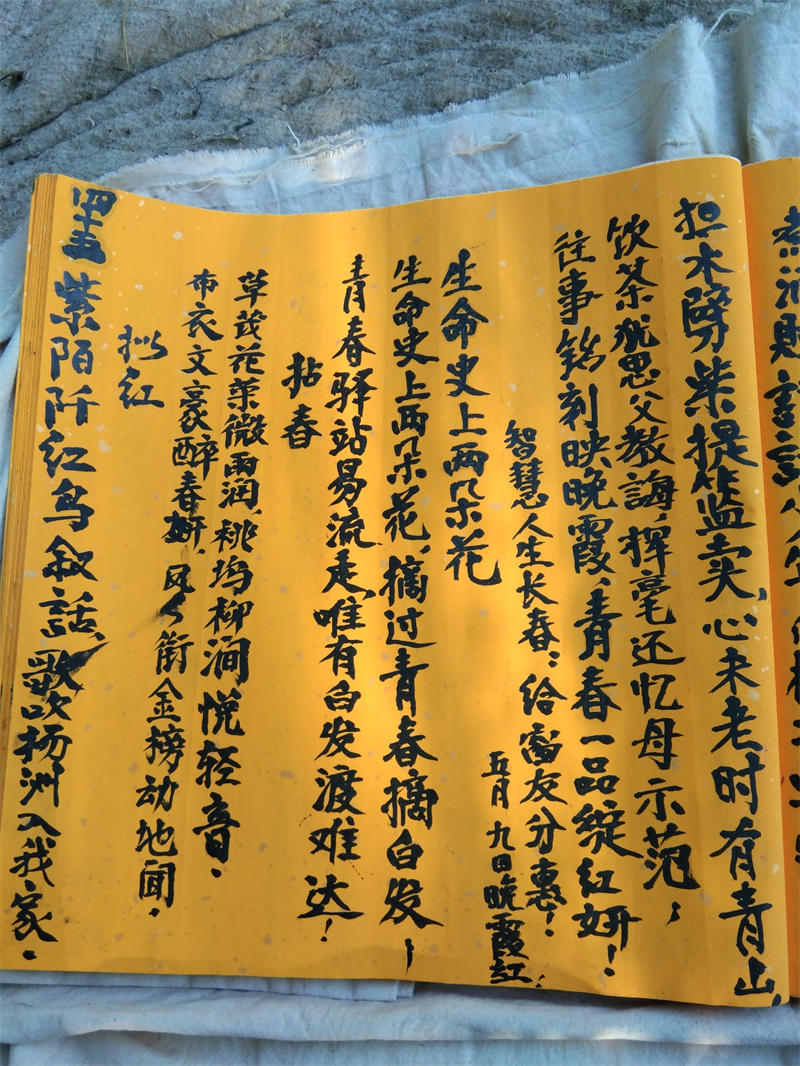 煮酒賦詩話人生
担水劈柴提篮卖,心未老时有青山,
饮茶犹思父教誨,挥毫还忆母示范,
往事镌刻映晚霞,青春一品綻红妍!
智慧人生长春:给窗友分惠!
五月九日晚霞红:
生命史上两朵花
生命史上两朵花,摘过青春摘白发!
青春驿站易流走,唯有白发渡难达!
拈春
草茂花荣微雨润,桃坞柳涧悦轻音.
布衣文豪醉春妍,风々衔金榜动地闻.
拟红
四十五 紫陌阡红鸟叙話,歌吹扬洲入我家.